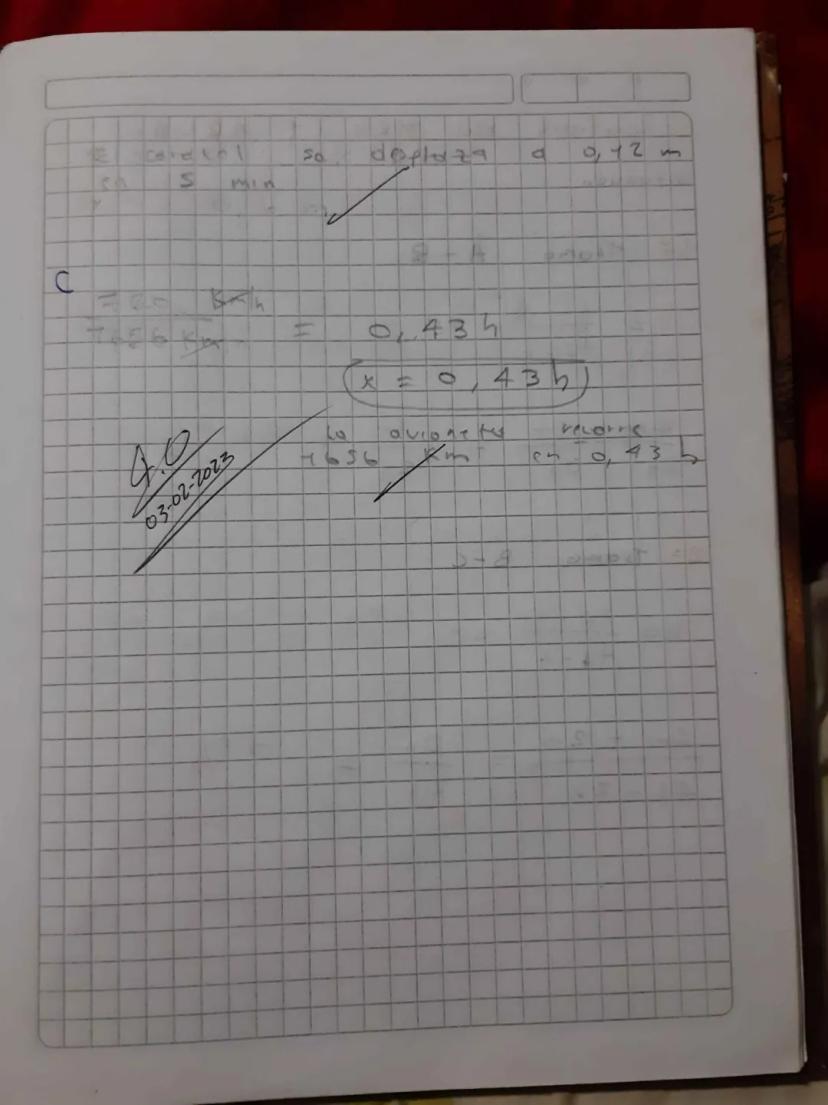 El caracol se desplaza a 0,12 m
en 5 min
C
720 Km h
1656 Km = 0,43 h
x = 0,43 h
la avioneta recorre
1656 Km en 0,43 h
4.0
03-02-2023